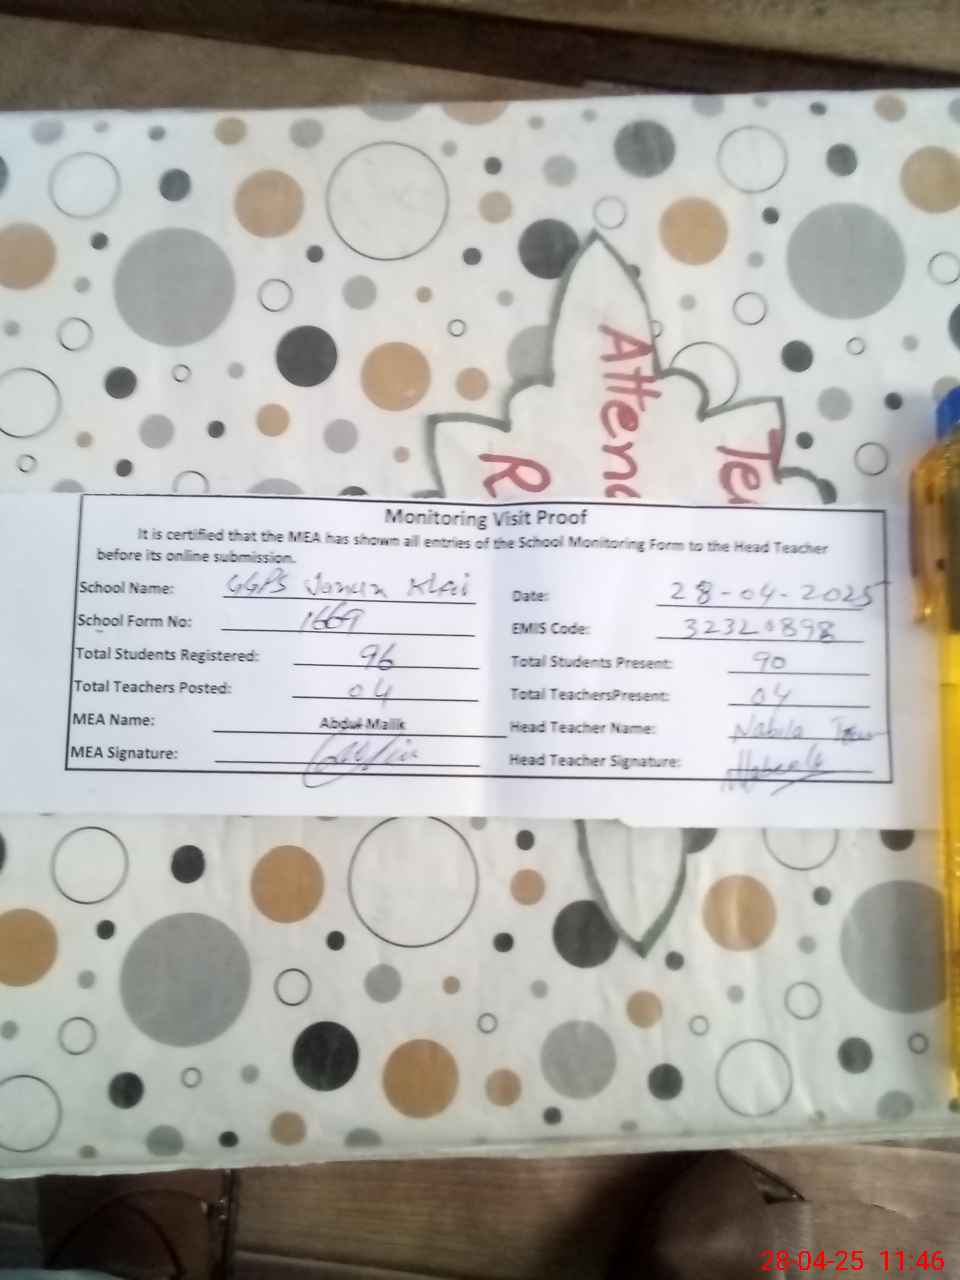 Atten
Te
R
Monitoring Visit Proof
It is certified that the MEA has shown all entries of the School Monitoring Form to the Head Teacher
before its online submission.
School Name: GGPS Janun Khai Date: 28-04-2025
School Form No: 1669 EMIS Code: 32320898
Total Students Registered: 96 Total Students Present: 90
Total Teachers Posted: 04 Total TeachersPresent: 04
MEA Name: Abdul Malik Head Teacher Name: Nabila
MEA Signature: Head Teacher Signature: Nabeela
28-04-25 11:46